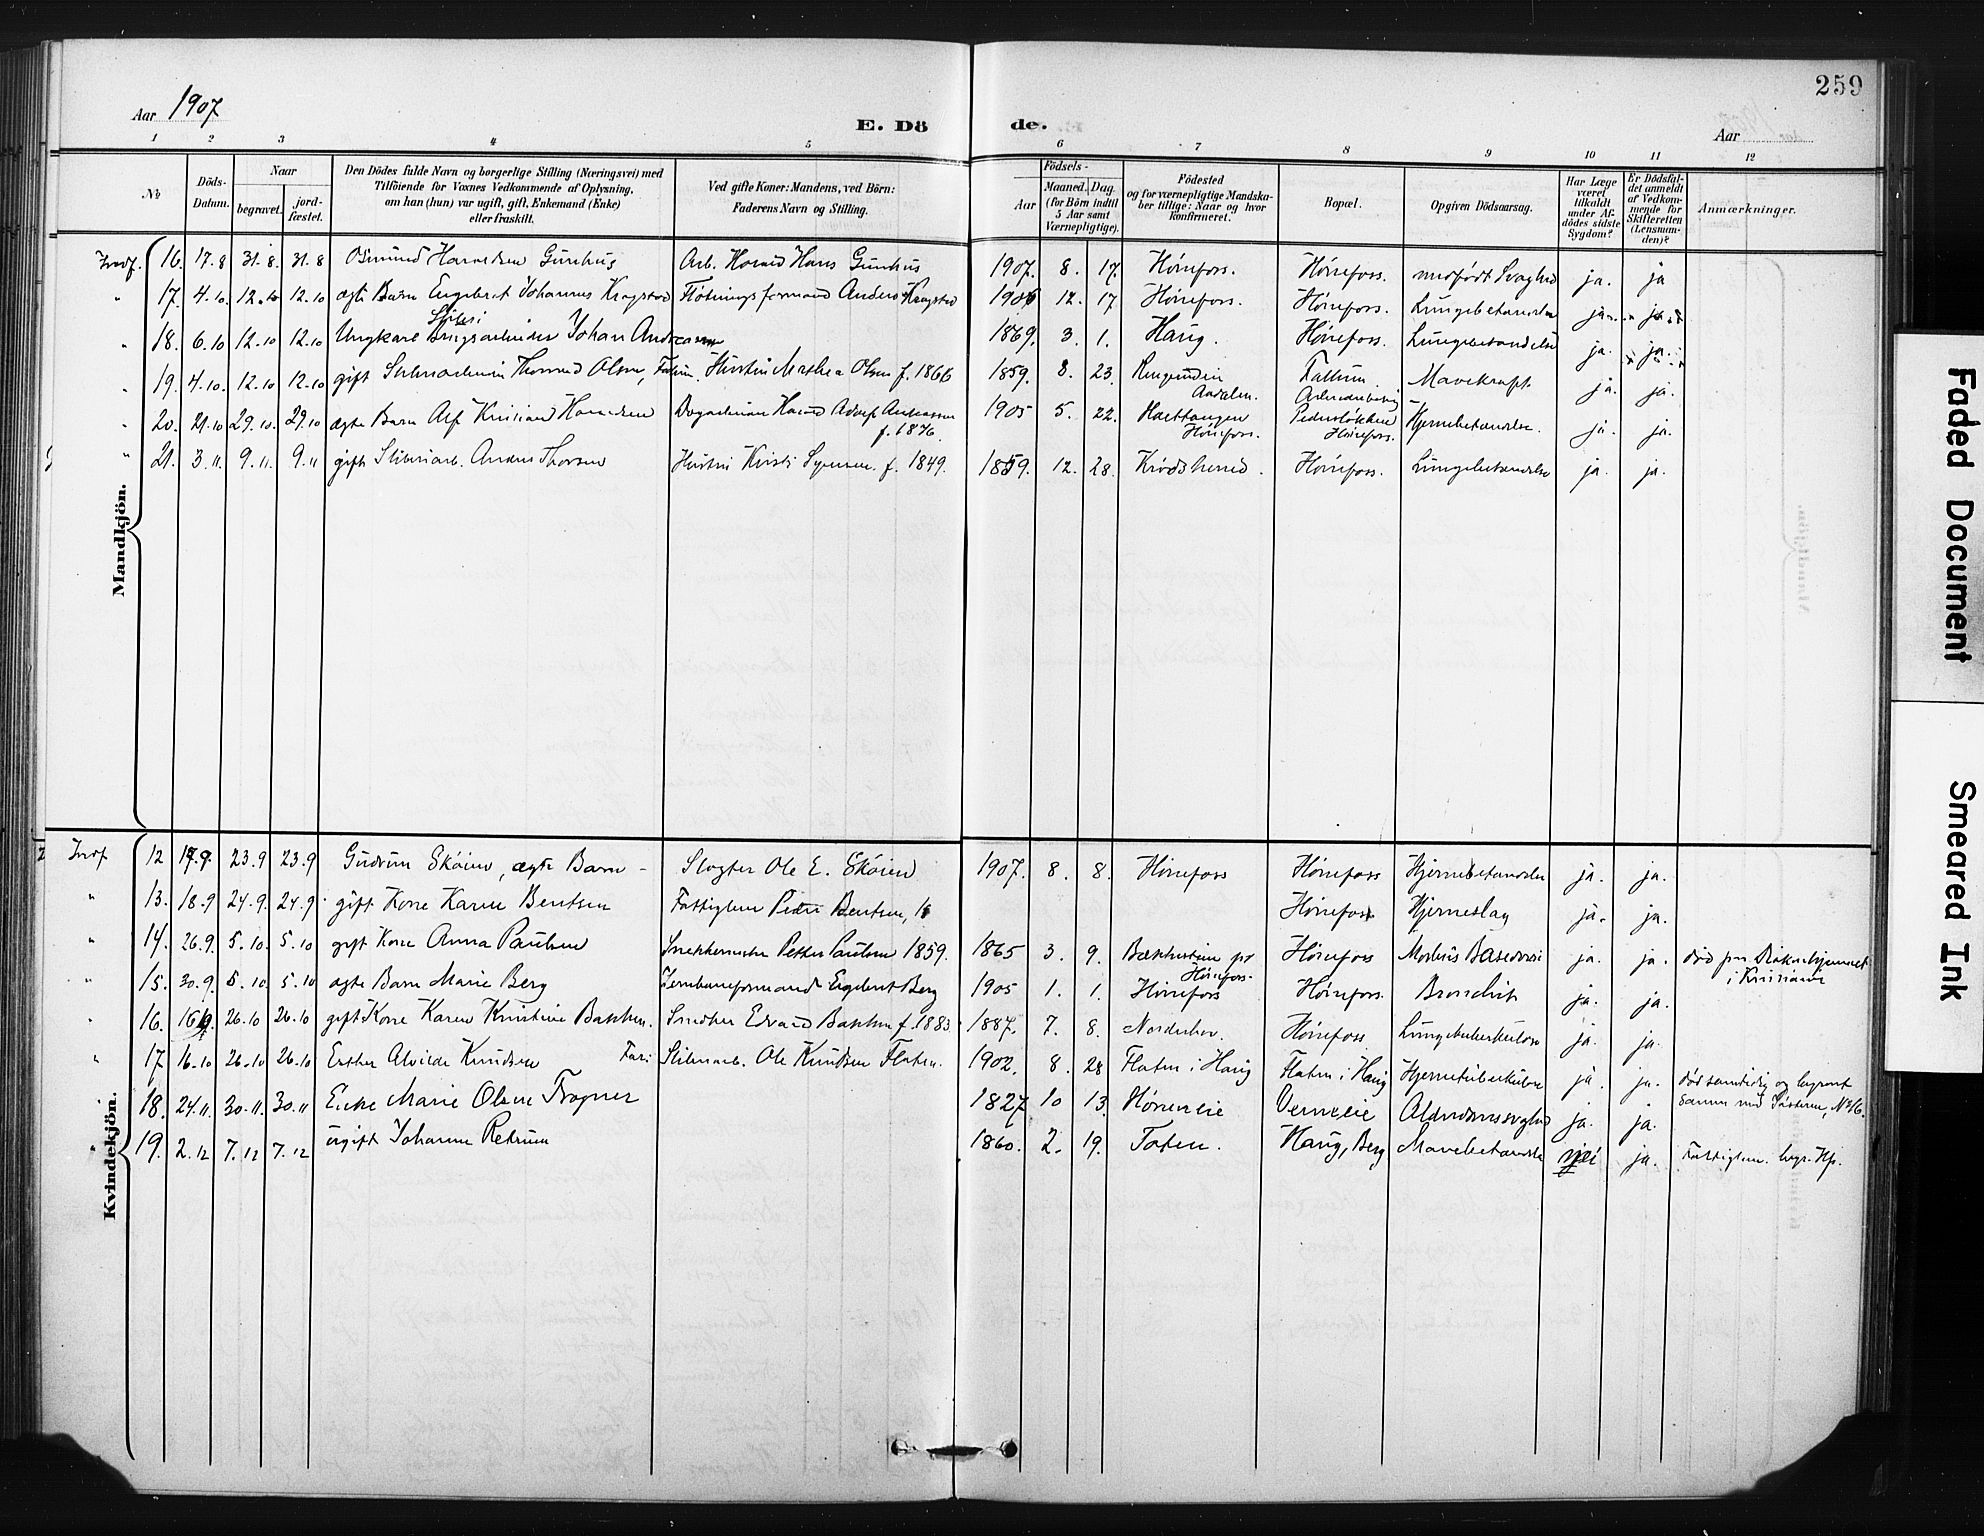 259
Aar 1907
E. Dö de.
Aar
1 2 3 4 5 6 7 8 9 10 11 12
№
Döds-Datum.
Naar
begravet.
jord-fæstet.
Den Dödes fulde Navn og borgerlige Stilling (Næringsvei) med
Tilföiende for Voxnes Vedkommende af Oplysning,
om han (hun) var ugift, gift, Enkemand (Enke)
eller fraskilt.
Ved gifte Koner: Mandens, ved Börn:
Faderens Navn og Stilling.
Födsels-
Aar
Maaned. Dag.
(for Börn indtil
5 Aar samt
Værnepligtige).
Födested
og for værnepligtige Mandska-
ber tillige: Naar og hvor
konfirmeret.
Bopæl.
Opgiven Dödsaarsag.
Har Læge
været
tilkaldt
under Af-
dödes sidste
Sygdom?
Er Dödsfal-
det anmeldt
af Vedkom-
mende for
Skifteretten
(Lensman-
den)?
Anmærkninger.
Mandkjön.
16. 17.8 31.8. 31.8 Osmund Haraldsen Gunhus Arb. Harald Hans Gunhus 1907. 8. 17. Hønefoss. Hønefoss. medfødt Svaghed ja. ja
" 17. 4.10. 12.10 12.10 ægte Barn Engebret Johannes Kragstad Fløtningsformand Anders Kragstad 1906 12. 17. Hønefoss. Hønefoss. Lungebetændelse ja. ja.
Sliberi
" 18. 6.10 12.10 12.10 Ungkarl Brugsarbeider Johan Andreassen 1869. 3. 1. Haug. Hønefoss. Lungebetændelse ja. ja.
" 19. 4.10. 12.10 12.10 gift Olsen, Hustru Mathea Olsen f. 1866 1859. 8. 23. Aadalen. Mavekræft ja. ja.
" 20. 21.10 29.10. 29.10 ægte Barn Alf Kristian Haraldsen Harald Adolf Andreassen f. 1876. 1905 5. 22. Hønefoss. Hønefoss. Hjernebetændelse. ja. ja.
" 21. 3.11. 9.11. 9.11 gift Sliberiarb. Anders Thorsen Hustru Kirsti f. 1849. 1859. 12. 28. Krødsherred. Hønefoss. Lungebetændelse ja. ja.
Kvindekjön.
12 17.9. 23.9 23.9 Gudrun Skøien, ægte Barn - Slagter Ole E. Skøien 1907. 8. 8. Hønefoss Hønefoss Hjernebetændelse ja. ja.
" 13. 18.9 24.9. 24.9. gift Kone Karen Bentsen Fattiglem Peder Bentsen, Hønefoss Hjerneslag ja. ja.
" 14. 26.9. 5.10. 5.10 gift Kone Anna Paulsen Petter Paulsen 1859. 1865 3. 9. pr Hønefoss. Hønefoss Morbus Basedowi ja. ja. død paa i Kristiania
" 15. 30.9. 5.10. 5.10 ægte Barn Marie Berg Jernbaneformand Engebret Berg 1905 1. 1. Hønefoss Hønefoss. Bronchit ja. ja.
16. 26.10 26.10 gift Kone Karen Kristine Bakken. Snedker Edvard Bakken f. 1883. 1887. 7. 8. Norderhov. Hønefoss Lungetuberkulose ja. ja.
" 17. 16.10 26.10 26.10 Esther Alvilde Knudsen Far: Sliberiarb. Ole Knudsen Flaten. 1902. 8. 28 Flaten i Haug Flaten i Haug Hjernetuberkulose ja. ja. død samtidig og begravet sammen med Søsteren, №16.
18. 24.11. 30.11. 30.11 Enke Marie Olsen Trøgner 1827 10 13. Alderdomssvaghed ja. ja.
" 19. 2.12 7.12 7.12 ugift Johanne 1860. 2. 19. Toten. Haug, Berg Mavebetændelse nei ja. Fattiglem. begr. Hp.
Faded Document
Smeared Ink